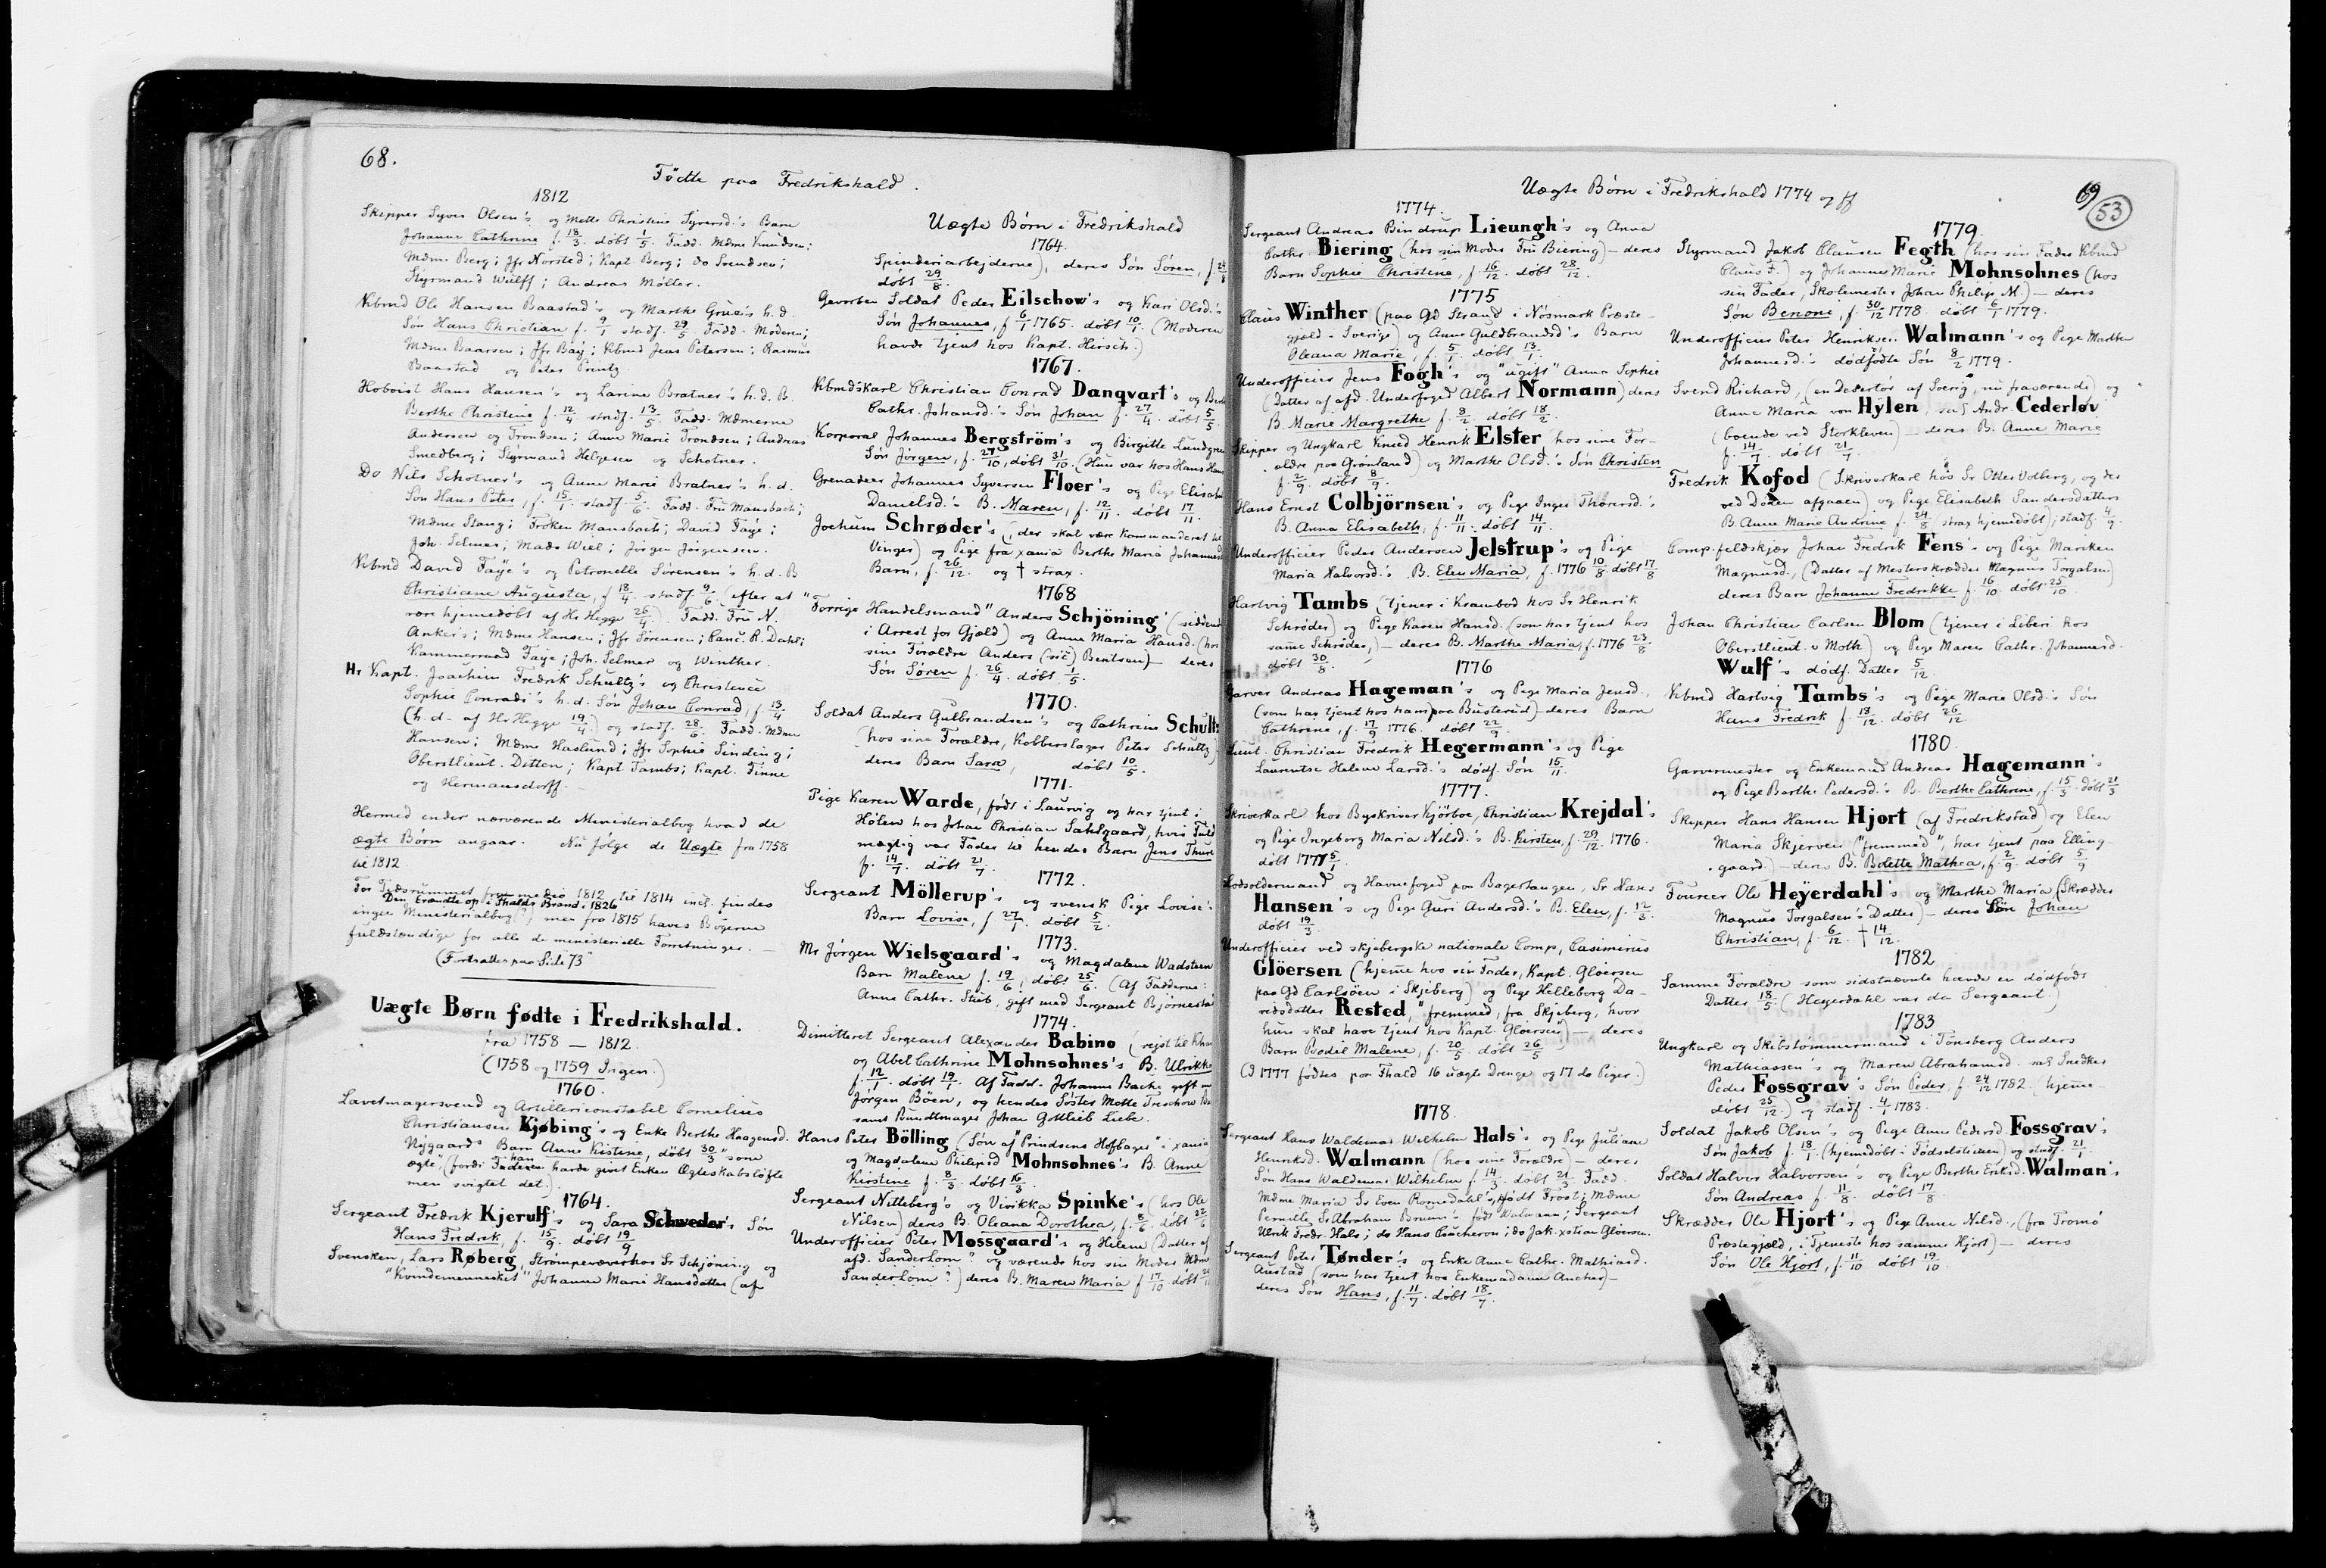 68.
Fødte paa Fredrikshald.
1812
Skipper Syver Olsen's og Mette Christine Syversd.'s Barn
Johanne Cathrine f. 18/3. döbt 1/5. Fadd. Mdme Knudsen;
Mdme Berg; Jfr Norsted; Kapt. Berg; do Svendsen;
Styrmand Wulff; Andreas Möller.
Kbmd Ole Hansen Baastad's og Marthe Grüe's h.d.
Søn Hans Christian f. 9/1 stadf. 29/5. Fadd. Moderen;
Mdme Baarsen; Jfr Baÿ; Kbmd Jens Petersen; Rasmus
Baastad og Peter Printz
Hoboist Hans Hansen's og Larine Bratner's h.d. B.
Berthe Christine f. 12/4 stadf. 13/5. Fadd. Mdmerne
Andersen og Trondsen; Anne Marie Trondsen; Andreas
Smedberg; Styrmand Helgesen og Schotner.
Do Nils Schotner's og Anne Marie Bratner's h.d.
Søn Hans Peter, f. 15/1. stadf. 5/6. Fadd. Fru Mansbach;
Mdme Stang; Frøken Mansbach; David Faÿe;
Joh. Selmer; Mads Wiel; Jørgen Jørgensen.
Kbmd David Faÿe's og Petronelle Sörensen's h.d. B
Christiane Augusta, f 18/4. stadf. 9/6 (efter at
være hjemmedøbt af Hr Hegge 26/4). Fadd. Fru N.
Anker's; Mdme Hansen; Jfr Sörensen; Canc. R. Dahl;
Kammerraad Faÿe; Joh. Selmer og Winther.
Hr Kapt. Joachim Fredrik Schultz's og Christence
Sophie Conradi's h.d. Søn Johan Conrad, f. 13/4
(h.d. af Hr Hegge 19/4) og stadf. 28/6. Fadd. Mdme
Hansen; Mdme Haslund; Jfr Sophie Sinding;
Oberstlieut. Ditten; Kapt. Tambs; Kapt. Finne
og Hermansdorff.
Hermed ender nærværende Ministerialbog hvad de
ægte Børn angaar. Nu følge de Uægte fra 1758
til 1812.
For Tidsrummet fra medio 1812 til 1814 incl. findes
Den brændte op i Fhalds Brand i 1826
ingen Ministerialbog(?) men fra 1815 haves Bøgerne
fuldstændige for alle de ministerielle Forretninger. —
(Fortsættes paa Side 73)
Uægte Børn fødte i Fredrikshald.
fra 1758 — 1812.
(1758 og 1759 Ingen.)
1760.
Lavetmagersvend og Artillericonstabel Cornelius
Christiansen Kjøbing's og Enke Berthe Haagensd.
Nÿgaards Barn Anne Kistine, døbt 30/3 "som
ægte", (fordi han Faderen havde givet Enken Ægteskabsløfte
men svigtet det.)
1764.
Sergeant Fredrik Kjerulf's og Sara Schweder's Søn
Hans Fredrik, f. 15/9. døbt 19/9
Svensken, Lars Røberg, Strømpevæver hos Sr Schjöning og
"Kvindemennesket" Johanne Marie Hansdatter (af
Uægte Børn i Fredrikshald
1764.
Spinderiarbejderne), deres Søn Søren, f. 24/8
døbt 29/8.
Gevorben Soldat Peder Eilschow's og Kari Olsd.'s
Søn Johannes, f 6/1 1765. døbt 10/1. (Moderen
havde tjent hos Kapt. Hirsch.)
1767.
Kbmdskarl Christian Conrad Danqvart's og
Cathr. Johansd.'s Søn Johan f. 27/4. døbt 5/5.
Korporal Johannes Bergström's og Birgitte
Søn Jörgen, f. 27/10, døbt 31/10. (Hun var hos Hans
Grenadeer Johannes Syversen Floer's og Pige
Danielsd.'s B. Maren, f. 12/11. døbt 17/11.
Jochum Schrøder's (der skal være kommanderet til
Vinger) og Pige fra Xania Berthe Maria
Barn, f. 26/12. og † strax.
1768
"Forrige Handelsmand" Anders Schjöning (siddende
i Arrest for Gjæld) og Anne Maria Hansd. (hos
sine Forældre Anders (sic) Bentsen) — deres
Søn Søren f. 26/4. døbt 1/5.
1770.
Soldat Anders Gulbrandsen's og Cathrine Schultz
hos sine Forældre, Kobberslager Peter Schultz)
deres Barn Sara, døbt 10/5.
1771.
Pige Karen Warde, født i Laurvig og har tjent i
Hölen hos Johan Christian Sahlgaard, hvis Fuld
mægtig var Fader til hendes Barn Jens Thue
f. 14/7. døbt 21/7.
1772.
Sergeant Möllerup's og svensk Pige Lovise's
Barn Lovise, f 27/1. døbt 5/2.
1773.
Mr Jörgen Wielsgaard's og Magdalene Wadsteen
Barn Malene f. 19/6, døbt 25/6. (Af Fadderne:
Anne Cathr. Stub, gift med Sergeant
1774.
Dimitteret Sergeant Alexander Babino (rejst til Kbhn
og Abel Cathrine Mohnsohnes's B. Ulrikke
f. 12/1. døbt 19/1. Af Fadd. Johanne Backe gift m
Jørgen Böen, og hendes Søster Mette Treschow
samt Bundtmager Johan Gottlieb Liebe.
Hans Peter Bölling (Søn af "Prindsens Hoffbager" i Xania
og Magdalene Philipsd Mohnsohnes's B. Anne
Kirstine f. 8/3. døbt 16/3.
Sergeant Nitteberg's og Virikka Spinke's (hos Ole
Nilsen) deres B. Oleana Dorothea, f. 8/6. døbt 22/6
Underofficier Peter Mossgaard's og Helene (Datter af
afd. Sanderhom? og værende hos sin Moder Mdme
Sanderhom?) deres B. Maren Maria f 17/10. døbt
Uægte Børn i Fredrikshald 1774 og ff
69
53
1774.
Sergeant Andreas Bindrup Lieungh's og Anna
Cathr. Biering (hos sin Moder Fru Biering) — deres
Barn Sophie Christine, f. 16/12. døbt 28/12.
1775
Claus Winther (paa Gd Strand i Nösmark Præste-
gjeld i Sverig) og Anne Guldbrandsd's Barn
Oleana Marie, f. 5/1. døbt 13/1.
Underofficier Jens Fogh's og "ugift" Anna Sophie
(Datter af afd. Underfoged Albert Normann) deres
B. Marie Margrethe f. 8/2. døbt 18/2.
Skipper og Ungkarl Knud Henrik Elster (hos sine For-
ældre paa Grönland) og Marthe Olsd.'s Søn Christen
f. 2/9. døbt 8/9.
Hans Ernst Colbjörnsen's og Pige Inger Thorersd.'s
B. Anna Elisabeth, f. 11/11. døbt 14/11.
Underofficier Peder Andersen Jelstrup's og Pige
Maria Halvorsd.'s B. Elen Maria, f. 1776 10/8. døbt 17/8
Hartvig Tambs (tjener i Krambod hos Sr Henrik
Schröder) og Pige Karen Hansd. (som har tjent hos
samme Schröder,) — deres B. Marthe Maria, f. 1776 23/8
døbt 30/8.
1776
Garver Andreas Hageman's og Pige Maria Jensd.,
(som har tjent hos ham paa Busterud) — deres Barn
Cathrine, f. 17/9 1776. døbt 22/9.
Lieut. Christian Fredrik Hegermann's og Pige
Laurentse Helene Larsd.'s dødf. Søn 15/11.
1777.
Skriverkarl hos Byskriver Kjörboe, Christian Krejdal's
og Pige Ingeborg Maria Nilsd.'s B. Kirsten, f. 29/12. 1776.
døbt 1777 5/1
Lodsoldermand og Havnefoged paa Bagerhaugen, Sr Hans
Hansen's og Pige Guri Andersd.'s B. Elen, f. 12/3.
døbt 19/3.
Underofficier ved skjebergske nationale Comp., Casimirus
Glöersen (hjemme hos sin Fader, Kapt. Glöersen
paa Gd Carlsöen i Skjeberg) og Pige Helleborg Da-
vidsdatter Rested, "fremmed, fra Skjeberg, hvor
hun skal have tjent hos Kapt. Glöersen") — deres
Barn Bodil Malene, f. 20/5. døbt 26/5.
(I 1777 fødtes paa Fhald 16 uægte Drenge og 17 do Piger.)
1778.
Sergeant Hans Waldemar Wilhelm Hals's og Pige Juliane
Henriksd. Walmann (hos sine Forældre) — deres
Søn Hans Waldemar Wilhelm f. 14/3. døbt 21/3. Fadd.
Mdme Maria Sr Even Romsdahl's, født Frost; Mdme
Pernille Sr Abraham Bruun's født Walmann; Sergeant
Ulrik Fredr. Hals; do Hans Coucheron; do Jak. Xstian Glöersen.
Sergeant Peter Tønder's og Enke Anne Cathr. Mathiasd.
Austad (som har tjent hos Enkemadame Ancher) —
deres Søn Hans, f. 11/7. døbt 18/7.
1779.
Styrmand Jakob Clausen Fegth (hos sin Fader Kbmd
Claus F.) og Johanne Marie Mohnsohnes (hos
sin Fader, Skolemester Johan Philip M.) — deres
Søn Benoni, f. 30/12 1778 døbt 6/1 1779.
Underofficier Peter Henriksen Walmann's og Pige Marthe
Johannesd.'s dødfødte Søn 8/2 1779.
Svend Richard, (en Desertør af Sverig, nu fraværende) og
Anne Maria von Hÿlen, sal. Andr. Cederløv
(boende ved Storkleven) — deres B. Anne Marie
f. 14/7. døbt 21/7.
Fredrik Kofod (Skriverkarl hos Sr Otter Volberg, og der
ved Döden afgaaen) og Pige Elisabeth Sandersdatters
B. Anne Marie Andrine f. 24/8 (strax hjemmedøbt); stadf. 4/9.
Comp.feldskjær Johan Fredrik Fens's og Pige Mariken
Magnusd., (Datter af Mesterskrædder Magnus Torgalsen)
deres Barn Johanne Fredrikke f. 16/10. døbt 25/10.
Johan Christian Carlsen Blom (tjener i Liberi hos
Oberstlieut. v Moth) og Pige Maren Cathr. Johannesd.
Wulf's dødf. Datter 5/12.
Kbmd Hartvig Tambs's og Pige Marie Olsd.'s Søn
Hans Fredrik f. 18/12. døbt 26/12.
1780.
Garvermester og Enkemand Andreas Hagemann's
og Pige Barthe Pedersd.'s B. Berthe Cathrine, f. 15/3. døbt 21/3
Skipper Hans Hansen Hjort (af Fredrikstad) og Elen
Maria Skjerven ("fremmed", har tjent paa Elling-
gaard) — deres B. Bolette Mathea, f. 2/9. døbt 5/9
Fourer Ole Heyerdahl's og Marthe Maria (Skrædder
Magnus Torgalsen's Datter) — deres Søn Johan
Christian, f. 6/12. † 14/12.
1782
Samme Forældre som sidstnævnte havde en dødfødt
Datter 18/5. (Heyerdahl var da Sergeant.)
1783
Ungkarl og Skibstømmermand i Tönsberg Anders
Mathiassen's og Maren Abrahamsd. sal. Snedker
Peder Fossgrav's Søn Peder, f. 24/12 1782. (hjemme-
døbt 25/12.) og stadf. 4/1 1783.
Soldat Jakob Olsen's og Pige Anne Pedersd. Fossgrav's
Søn Jakob f. 18/1. (hjemmedøbt i Fødselstimen) og stadf. 21/1.
Soldat Halvor Halvorsen's og Pige Berthe Eriksd. Walman's
Søn Andreas f. 11/8. døbt 17/8.
Skrædder Ole Hjort's og Pige Anne Nilsd., (fra Tromö
Præstegjæld, i Tjeneste hos samme Hjort) — deres
Søn Ole Hjort, f. 11/10 døbt 19/10.